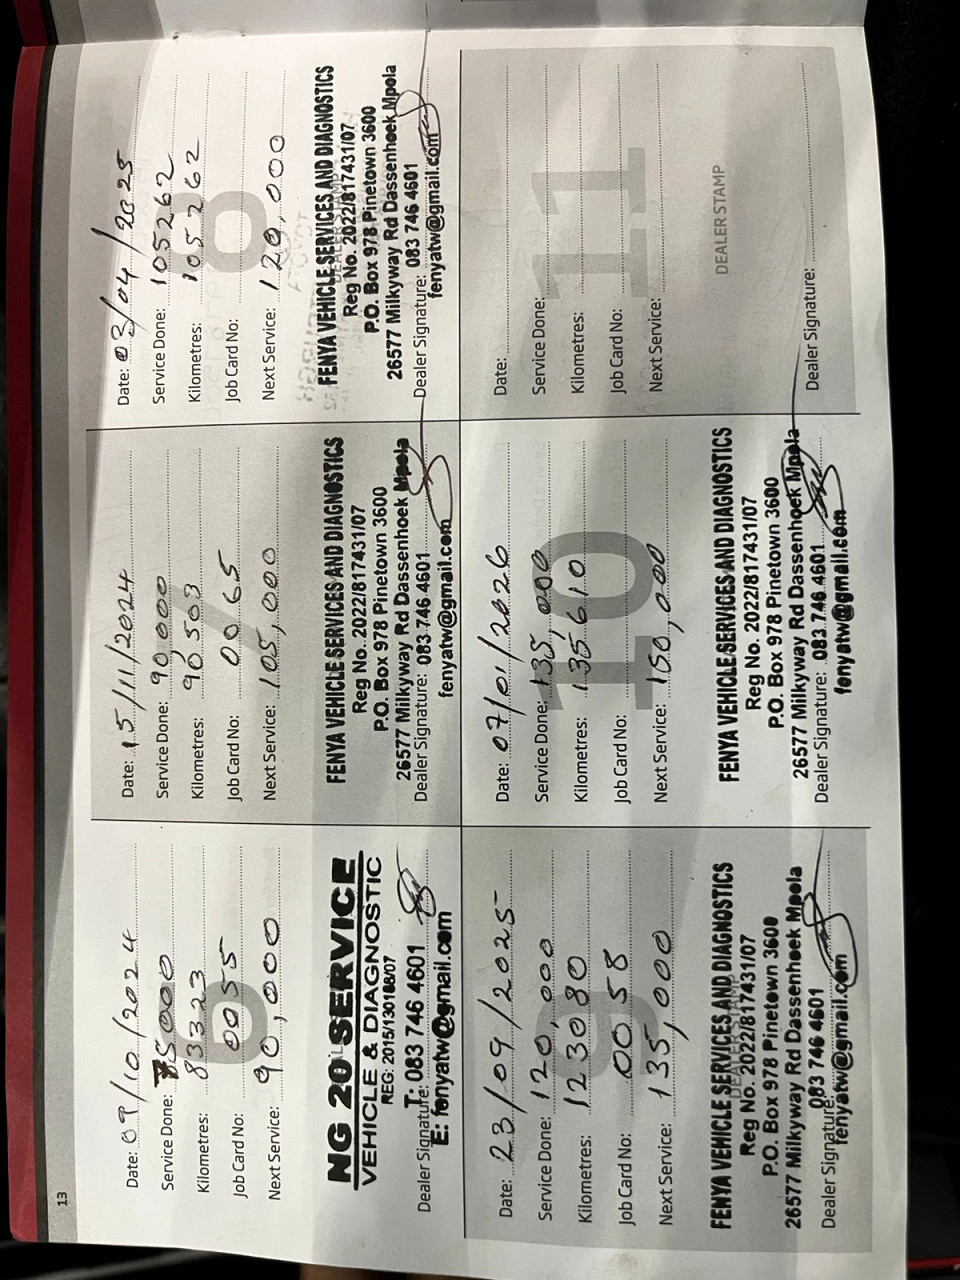 13
6
Date: 09/10/2024
Service Done: 75000
Kilometres: 83323
Job Card No: 0055
Next Service: 90,000
NG 20 SERVICE
VEHICLE & DIAGNOSTIC
REG: 2015/130186/07
T: 083 746 4601
Dealer Signature:
E: fenyatw@gmail.com
7
Date: 15/11/2024
Service Done: 90,000
Kilometres: 90503
Job Card No: 0065
Next Service: 105,000
FENYA VEHICLE SERVICES AND DIAGNOSTICS
Reg No. 2022/817431/07
P.O. Box 978 Pinetown 3600
26577 Milkyway Rd Dassenhoek Mpola
Dealer Signature: 083 746 4601
fenyatw@gmail.com
8
Date: 03/04/2025
Service Done: 105262
Kilometres: 105262
Job Card No:
Next Service: 120,000
FENYA VEHICLE SERVICES AND DIAGNOSTICS
DEALER STAMP
Reg No. 2022/817431/07
P.O. Box 978 Pinetown 3600
26577 Milkyway Rd Dassenhoek Mpola
Dealer Signature: 083 746 4601
fenyatw@gmail.com
9
Date: 23/09/2025
Service Done: 120,000
Kilometres: 123080
Job Card No: 0058
Next Service: 135,000
FENYA VEHICLE SERVICES AND DIAGNOSTICS
DEALER STAMP
Reg No. 2022/817431/07
P.O. Box 978 Pinetown 3600
26577 Milkyway Rd Dassenhoek Mpola
Dealer Signature: 083 746 4601
fenyatw@gmail.com
10
Date: 07/01/2026
Service Done: 135,000
Kilometres: 135610
Job Card No:
Next Service: 150,000
FENYA VEHICLE SERVICES AND DIAGNOSTICS
Reg No. 2022/817431/07
P.O. Box 978 Pinetown 3600
26577 Milkyway Rd Dassenhoek Mpola
Dealer Signature: 083 746 4601
fenyatw@gmail.com
11
Date:
Service Done:
Kilometres:
Job Card No:
Next Service:
DEALER STAMP
Dealer Signature: